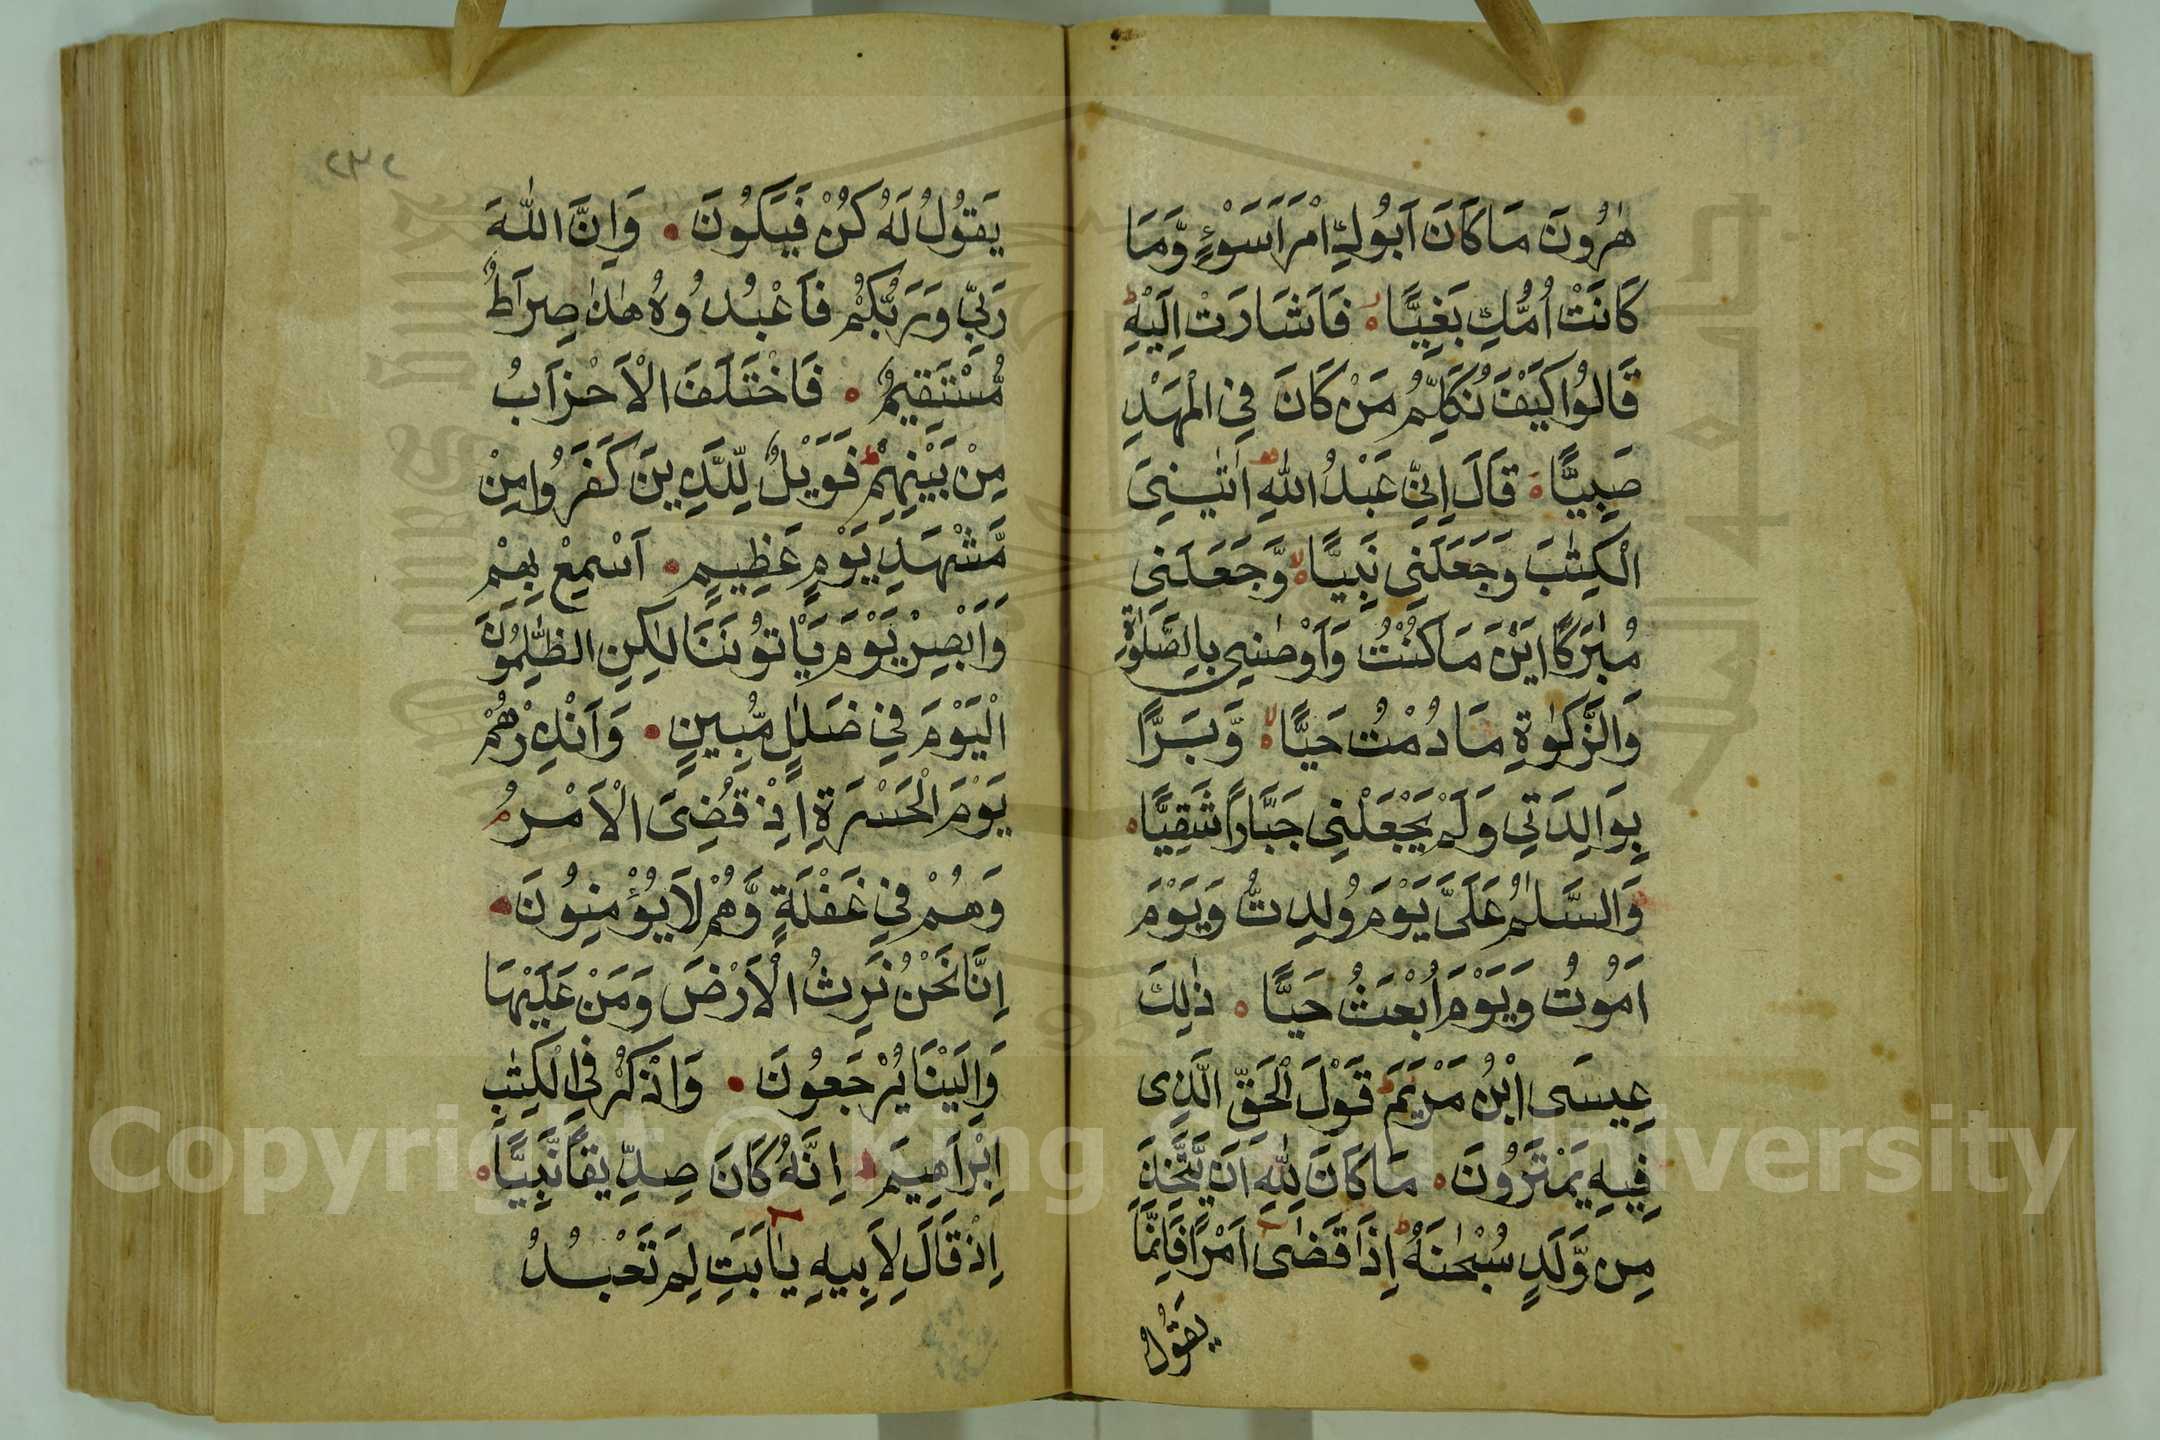 هٰرُونَ مَا كَانَ اَبُوكِ امْرَاَ سَوْءٍ وَّمَا
كَانَتْ اُمُّكِ بَغِيًّا ۚ فَاَشَارَتْ اِلَيْهِ ؕ
قَالُوا كَيْفَ نُكَلِّمُ مَنْ كَانَ فِي الْمَهْدِ
صَبِيًّا قَالَ اِنِّي عَبْدُ اللّٰهِ اٰتٰىنِيَ
الْكِتٰبَ وَجَعَلَنِي نَبِيًّا ۙ وَّجَعَلَنِي
مُبٰرَكًا اَيْنَ مَا كُنْتُ وَاَوْصٰنِي بِالصَّلٰوةِ
وَالزَّكٰوةِ مَا دُمْتُ حَيًّا ۙ وَّبَرًّا
بِوَالِدَتِي وَلَمْ يَجْعَلْنِي جَبَّارًا شَقِيًّا
وَالسَّلٰمُ عَلَيَّ يَوْمَ وُلِدتُّ وَيَوْمَ
اَمُوتُ وَيَوْمَ اُبْعَثُ حَيًّا ذٰلِكَ
عِيسَى ابْنُ مَرْيَمَ قَوْلَ الْحَقِّ الَّذِي
فِيهِ يَمْتَرُونَ مَا كَانَ لِلّٰهِ اَنْ يَّتَّخِذَ
مِن وَّلَدٍ سُبْحٰنَهُ ؕ اِذَا قَضٰى اَمْرًا فَاِنَّمَا
يَقُولُ
٢٣٢
يَقُولُ لَهُ كُنْ فَيَكُونَ وَاِنَّ اللّٰهَ
رَبِّي وَرَبُّكُمْ فَاعْبُدُوهُ هٰذَا صِرَاطٌ
مُّسْتَقِيمٌ فَاخْتَلَفَ الْاَحْزَابُ
مِنْ بَيْنِهِمْ ۚ فَوَيْلٌ لِّلَّذِينَ كَفَرُوا مِنْ
مَّشْهَدِ يَوْمٍ عَظِيمٍ اَسْمِعْ بِهِمْ
وَاَبْصِرْ يَوْمَ يَاْتُونَنَا لٰكِنِ الظّٰلِمُونَ
الْيَوْمَ فِي ضَلٰلٍ مُّبِينٍ وَاَنْذِرْهُمْ
يَوْمَ الْحَسْرَةِ اِذْ قُضِيَ الْاَمْرُ
وَهُمْ فِي غَفْلَةٍ وَّهُمْ لَا يُؤْمِنُونَ
اِنَّا نَحْنُ نَرِثُ الْاَرْضَ وَمَنْ عَلَيْهَا
وَاِلَيْنَا يُرْجَعُونَ وَاذْكُرْ فِي الْكِتٰبِ
اِبْرَاهِيمَ اِنَّهُ كَانَ صِدِّيقًا نَّبِيًّا
اِذْ قَالَ لِاَبِيهِ يٰاَبَتِ لِمَ تَعْبُدُ
Copyright © King Saud University